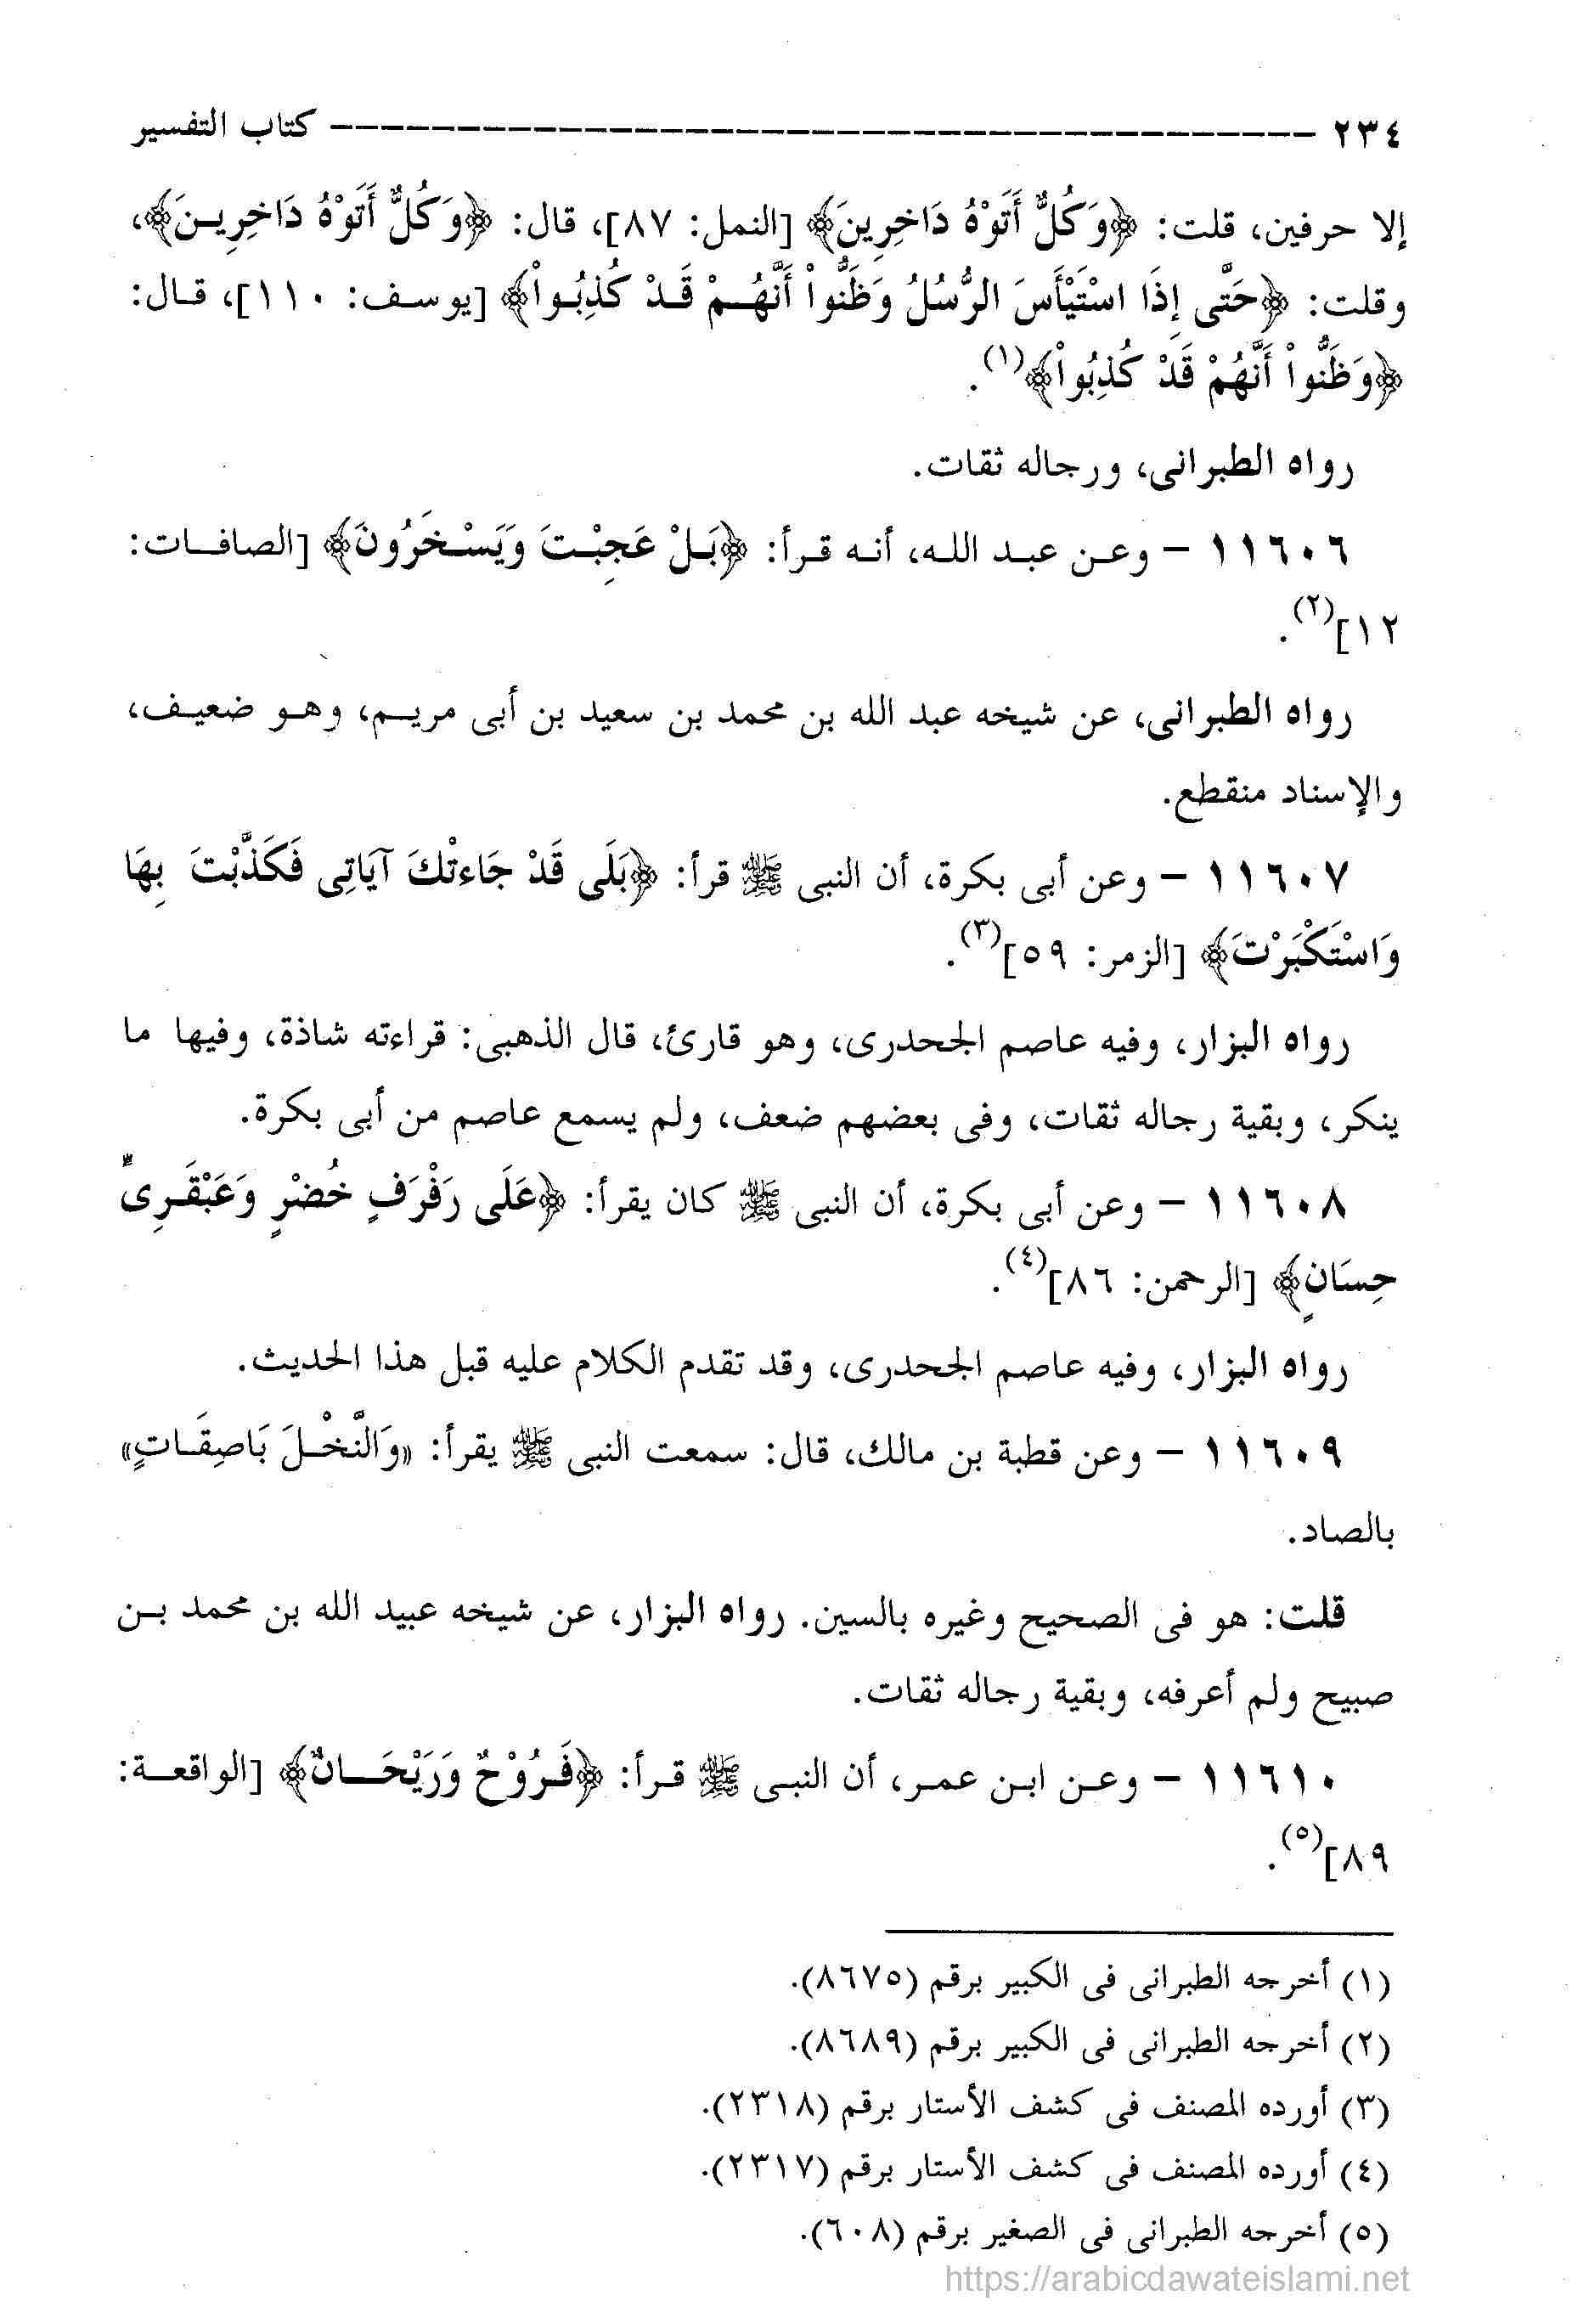 ٢٣٤ ــــــــــــــــــــــــــــــــــــــــــــــــــــــــــــــ كتاب التفسير
إلا حرفين، قلت: ﴿وَكُلٌّ أَتَوْهُ دَاخِرِينَ﴾ [النمل: ٨٧]، قال: ﴿وَكُلٌّ أَتَوْهُ دَاخِرِينَ﴾،
وقلت: ﴿حَتَّى إِذَا اسْتَيْأَسَ الرُّسُلُ وَظَنُّواْ أَنَّهُمْ قَدْ كُذِبُواْ﴾ [يوسف: ١١٠]، قال:
﴿وَظَنُّواْ أَنَّهُمْ قَدْ كُذِبُواْ﴾(١).
رواه الطبرانى، ورجاله ثقات.
١١٦٠٦ - وعن عبد الله، أنه قرأ: ﴿بَلْ عَجِبْتَ وَيَسْخَرُونَ﴾ [الصافات:
١٢](٢).
رواه الطبرانى، عن شيخه عبد الله بن محمد بن سعيد بن أبى مريم، وهو ضعيف،
والإسناد منقطع.
١١٦٠٧ - وعن أبى بكرة، أن النبى ﷺ قرأ: ﴿بَلَى قَدْ جَاءتْكَ آيَاتِى فَكَذَّبْتَ بِهَا
وَاسْتَكْبَرْتَ﴾ [الزمر: ٥٩](٣).
رواه البزار، وفيه عاصم الجحدرى، وهو قارئ، قال الذهبى: قراءته شاذة، وفيها ما
ينكر، وبقية رجاله ثقات، وفى بعضهم ضعف، ولم يسمع عاصم من أبى بكرة.
١١٦٠٨ - وعن أبى بكرة، أن النبى ﷺ كان يقرأ: ﴿عَلَى رَفْرَفٍ خُضْرٍ وَعَبْقَرِىٍّ
حِسَانٍ﴾ [الرحمن: ٨٦](٤).
رواه البزار، وفيه عاصم الجحدرى، وقد تقدم الكلام عليه قبل هذا الحديث.
١١٦٠٩ - وعن قطبة بن مالك، قال: سمعت النبى ﷺ يقرأ: «وَالنَّخْلَ بَاصِقَاتٍ»
بالصاد.
قلت: هو فى الصحيح وغيره بالسين. رواه البزار، عن شيخه عبيد الله بن محمد بن
صبيح ولم أعرفه، وبقية رجاله ثقات.
١١٦١٠ - وعن ابن عمر، أن النبى ﷺ قرأ: ﴿فَرُوْحٌ وَرَيْحَانٌ﴾ [الواقعة:
٨٩](٥).
(١) أخرجه الطبرانى فى الكبير برقم (٨٦٧٥).
(٢) أخرجه الطبرانى فى الكبير برقم (٨٦٨٩).
(٣) أورده المصنف فى كشف الأستار برقم (٢٣١٨).
(٤) أورده المصنف فى كشف الأستار برقم (٢٣١٧).
(٥) أخرجه الطبرانى فى الصغير برقم (٦٠٨).
https://arabicdawateislami.net